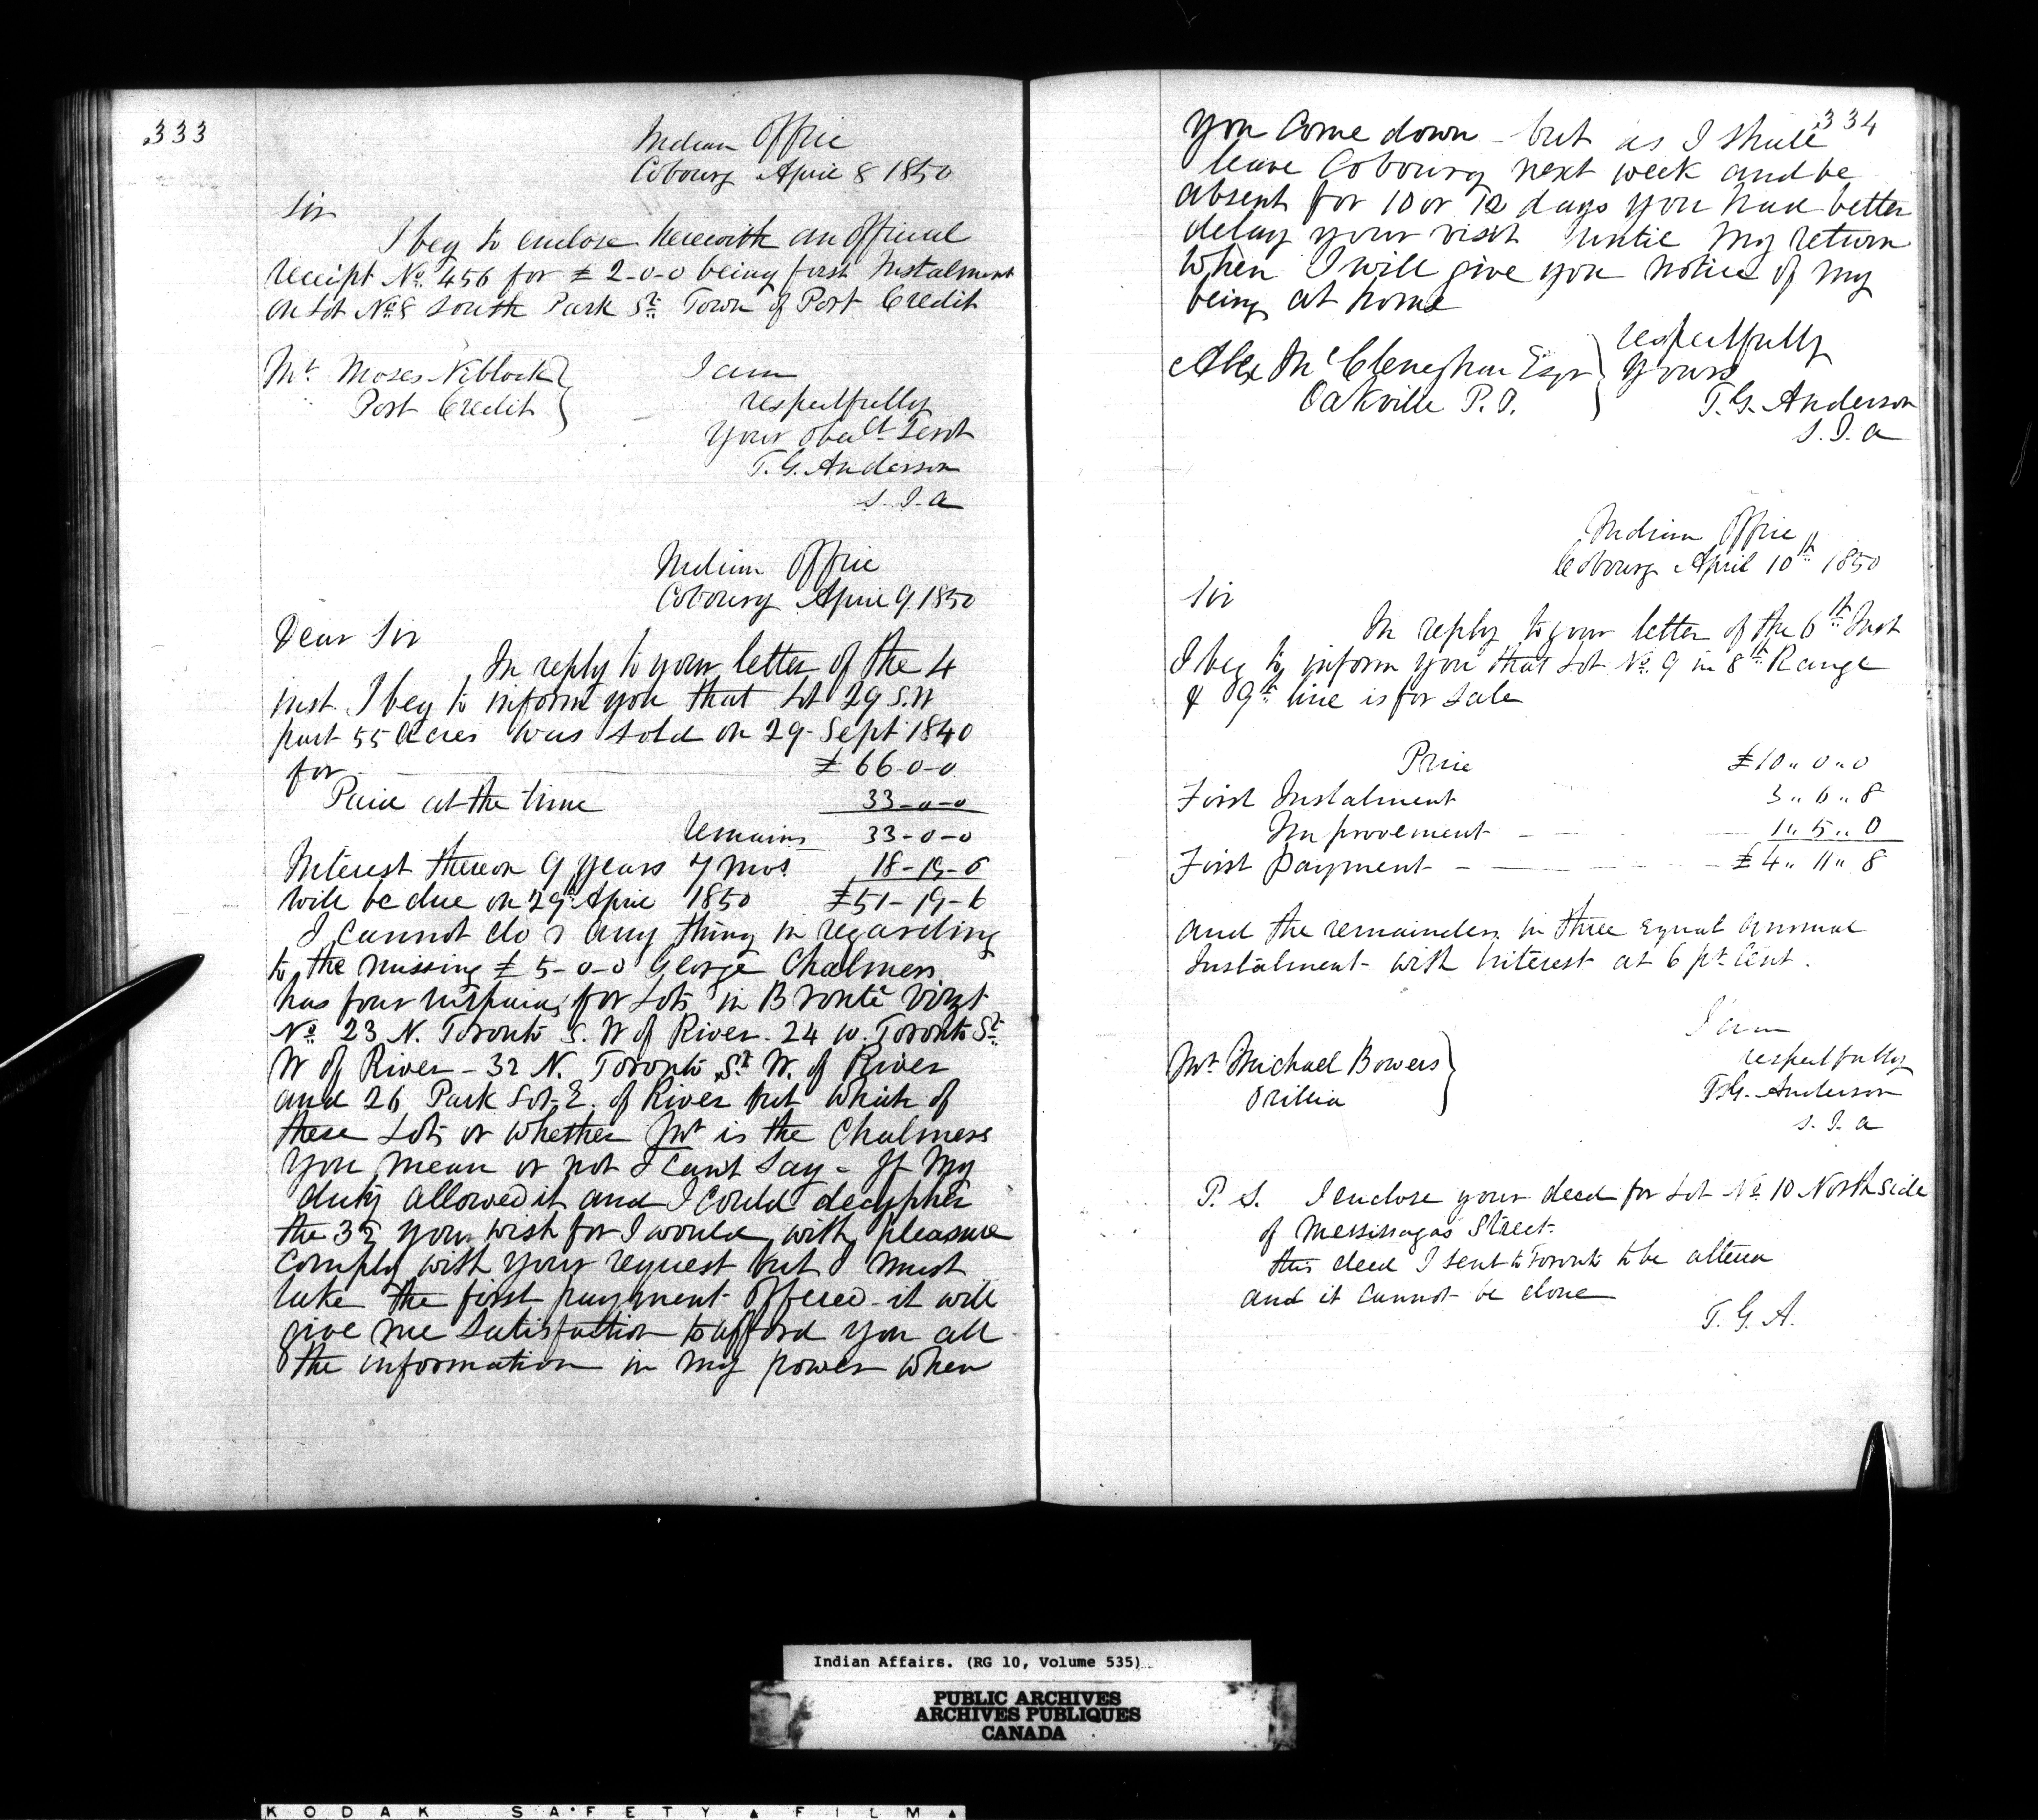 333
Indian Office
Cobourg April 8 1850
Sir
I beg to enclose herewith an official
receipt No. 456 for £ 2-0-0 being first Instalment
on Lot No. 8 South Park St. Town of Port Credit
Mr. Moses Niblock
Port Credit
I am
respectfully
Your obed't Servt
T. G. Anderson
S. I. A
Indian Office
Cobourg April 9. 1850
Dear Sir
In reply to your letter of the 4
inst. I beg to inform you that Lot 29 S.W
part 55 Acres was sold on 29- Sept 1840
for £ 66-0-0
Paid at the time 33-0-0
Remains 33-0-0
Interest thereon 9 years 7 mos. 18-19-6
will be due on 29th April 1850 £51-19-6
I cannot do any thing in regarding
to the missing £ 5-0-0 George Chalmers
has four for Lots in Bronte vizt
No. 23 N. Toronto S. W of River. 24 W. Toronto St.
W of River - 32 N. Toronto St. W. of River
and 26 Park Lot- E. of River but which of
these Lots or whether is the Chalmers
you mean or not I can't say - If my
duty allowed it and I could decypher
the 35 your wish for I would with pleasure
comply with your request but I must
take the first payment offered - it will
give me satisfaction to afford you all
the information in my power when
334
you come down - but as I shall
leave Cobourg next week and be
absent for 10 or 12 days you had better
delay your visit until my return
when I will give you notice of my
being at home
Alex McCleneghan Esqr
Oakville P. O.
respectfully
Yours
T. G. Anderson
S. I. A
Indian Office
Cobourg April 10th 1850
Sir
In reply to your letter of the 6th Inst
I beg to inform you that Lot No. 9 in 8th Range
& 9th line is for Sale
Price £10 " 0 " 0
First Instalment 3 " 6 " 8
Improvement 1 " 5 " 0
First Payment £ 4 " 11 " 8
and the remainder in three equal annual
Instalment with Interest at 6 pr Cent.
I am
respectfully
T. G. Anderson
S. I. A
Mr Michael Bowers
Orillia
P. S. I enclose your deed for Lot No. 10 North side
of Messissagas Street.
this deed I sent to Toronto to be altered
and it cannot be done
T. G. A.
Indian Affairs. (RG 10, Volume 535)
PUBLIC ARCHIVES
ARCHIVES PUBLIQUES
CANADA
KODAK SAFETY FILM